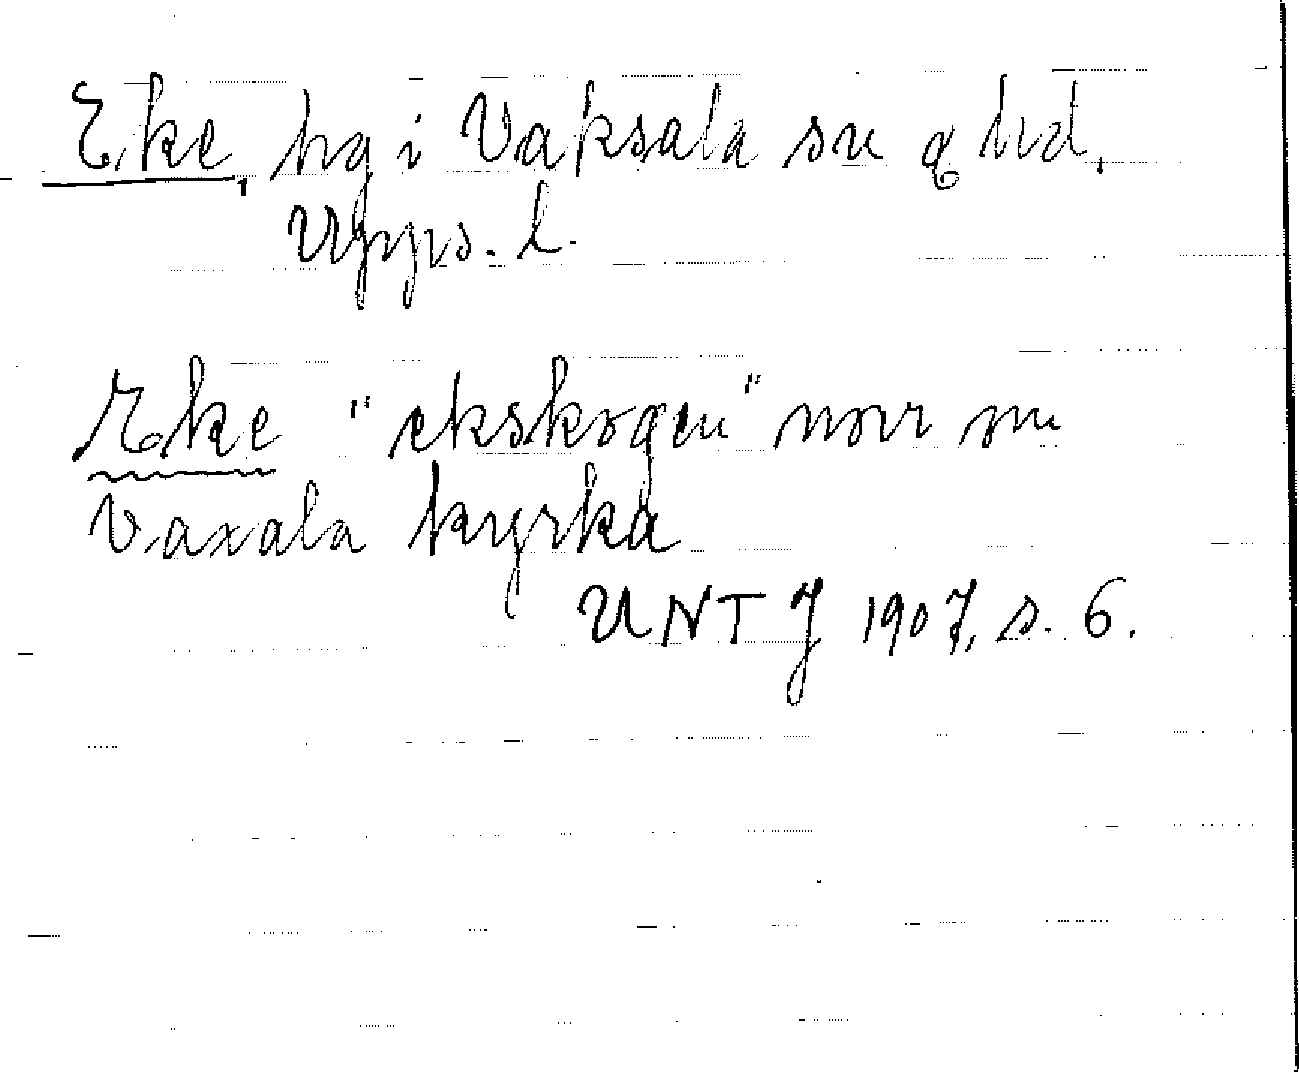 Eke, hg i Vaksala sn o hd,
Upps. l.
Eke "ekskogen" norr om
Vaxala kyrka
UNT J 1907, s. 6.